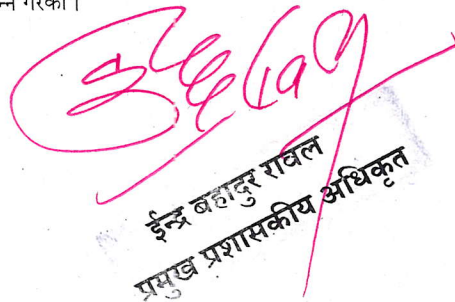 गरेको ।
ईन्द्र बहादुर रावल
प्रमुख प्रशासकीय अधिकृत